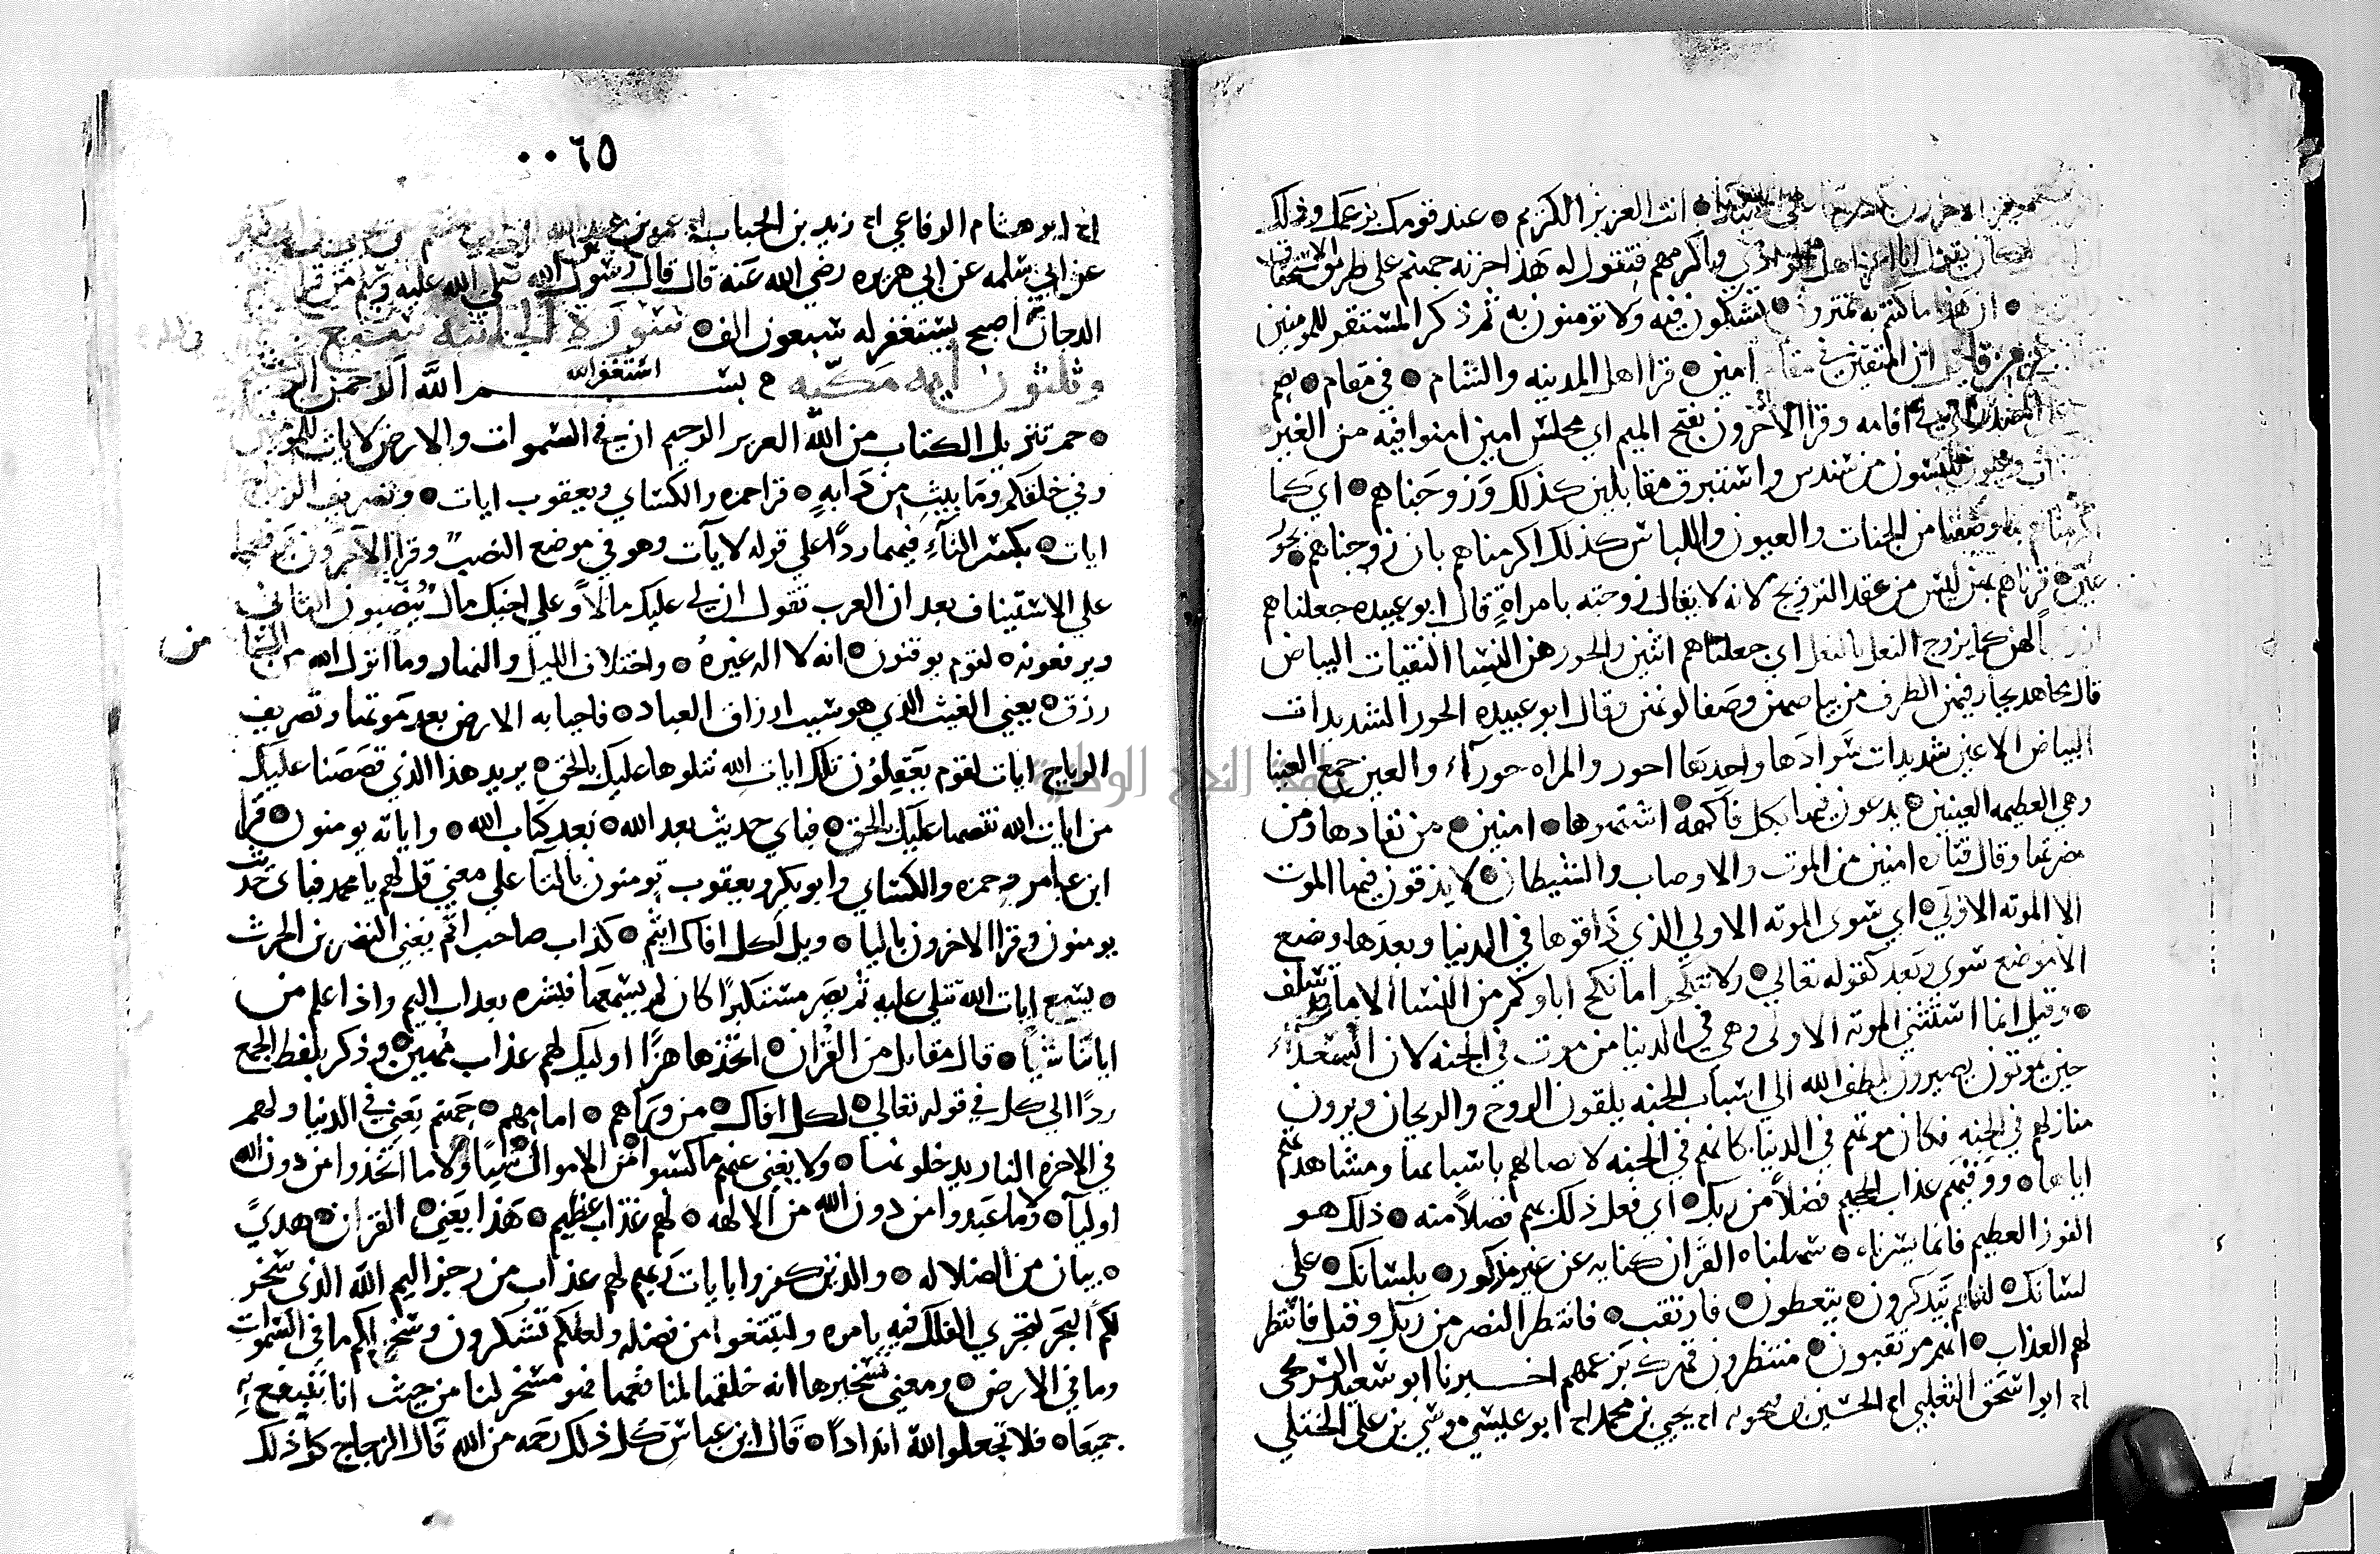 انت العزيز الكريم ۞ عند قومك بزعمك وذلك
واكرمهم فتقول له هذا خزنه جهنم على طريق الاستخفاف
۞ ان هذا ما كنتم به تمترون ۞ تشكون فيه ولا تومنون به ثم ذكر المستقر للمومنين
ان المتقين في مقام امين ۞ قرا اهل المدينه والشام ۞ في مقام ۞ بضم
اقامه وقرا الاخرون بفتح الميم اي مجلس امين امنوا فيه من الغير
يلبسون من سندس واستبرق متقابلين كذلك وزوجناهم ۞ اي كما
اكرمناهم بما وصفنا من الجنات والعيون واللباس كذلك اكرمناهم بان زوجناهم ۞ بحور
عين ۞ قرناهم بهن ليس من عقد التزويج لانه لا يقال زوجته بامراة قال ابو عبيده جعلناهم
لهن كما يزوج النعل بالنعل اي جعلناهم اثنين والحور هن النسا النقيات البياض
قال مجاهد يحار فيهن الطرف من بياضهن وصفا لونهن وقال ابو عبيده الحور الشديدات
البياض الاعين شديدات سوادها واحدتها احور والمراه حورآء والعين جمع العينا
وهي العظيمه العينين ۞ يدعون فيها بكل فاكهة اشتهوها ۞ امنين ۞ من نفادها ومن
مضرتها وقال قتاده امنين من الموت والاوصاب والشيطان ۞ لا يذوقون فيها الموت
الا الموته الاولي ۞ اي سوى الموته الاولي الذي ذاقوها في الدنيا وبعدها وضع
الا موضع سوى وبعد كقوله تعالي ۞ ولا تنكحوا ما نكح اباوكم من النسا الا ما قد سلف
۞ وقيل انما استثني الموته الاولى وهي في الدنيا من موت في الجنه لان السعدآء
حين يموتون يصيرون بلطف الله الي اسباب الجنه يلقون الروح والريحان ويرون
منازلهم في الجنه فكان موتهم في الدنيا كانهم في الجنه لاتصالهم باسبابها ومشاهدتهم
اياها ۞ ووقيهم عذاب الجحيم فضلاً من ربك ۞ اي فعل ذلك بهم فضلاً منه ۞ ذلك هو
الفوز العظيم فانما يسرناه ۞ سهلناه القرآن كنايه عن غير مذكور ۞ بلسانك ۞ على
لسانك ۞ لعلهم يتذكرون ۞ يتعظون ۞ فارتقب ۞ فانتظر النصر من ربك وقيل فانتظر
لهم العذاب ۞ انهم مرتقبون ۞ منتظرون قهرك بزعمهم اخبرنا ابو سعيد الشريحي
اح ابو اسحق الثعلبي اح الحسين بن فنجويه اح يحيي بن محمد اح ابو عيسي موسي بن علي الختلي
٠٠٦٥
اح ابو هشام الرفاعي اح زيد بن الحباب اح عمر بن عبد الله
عن ابي سلمه عن ابي هريره رضي الله عنه قال قال رسول الله صلي الله عليه وسلم من قرا
الدخان اصبح يستغفر له سبعون الف ۞ سورة الجاثيه سبع
وثلثون ايه مكيه م بسم الله الرحمن الرحيم
استغفر الله
۞ حم تنزيل الكتاب من الله العزيز الحكيم ان في السموات والارض لايات للمومنين
وفي خلقكم وما يبث من دابه ۞ قرا حمزه والكسائي ويعقوب ايات ۞ وتصريف الرياح
ايات ۞ بكسر التاء فيهما ردًا علي قوله لايآت وهو في موضع النصب وقرا الاخرون برفعهما
علي الاستيناف بعد ان العرب تقول ان لي عليك مالاً وعلي اخيك مال ينصبون الثاني
ويرفعونه ۞ لقوم يوقنون ۞ انه لا اله غيره ۞ واختلاف الليل والنهار وما انزل الله من السما من
رزق ۞ يعني الغيث الذي هو سبب ارزاق العباد ۞ فاحيا به الارض بعد موتها وتصريف
الرياح ايات لقوم يعقلون تلك ايات الله نتلوها عليك بالحق ۞ يريد هذا الذي قصصنا عليك
من ايات الله نقصها عليك بالحق ۞ فباي حديث بعد الله ۞ بعد كتاب الله ۞ واياته يومنون ۞ قرا
ابن عامر وحمزه والكسائي وابو بكر ويعقوب تومنون بالتآ علي معني قل لهم يا محمد فباى حديث
يومنون وقرا الاخرون باليا ۞ ويل لكل افاك اثيم ۞ كذاب صاحب اثم يعني النضر بن الحرث
۞ يسمع ايات الله تتلي عليه ثم يصر مستكبرًا كان لم يسمعها فبشره بعذاب اليم واذا علم من
اياتنا شيأ ۞ قال مقاتل من القران ۞ اتخذها هزًا اوليك لهم عذاب مهين ۞ وذكر بلفظ الجمع
ردًا الي كل في قوله تعالي ۞ لكل افاك ۞ من ورآهم ۞ امامهم ۞ جهنم يعني في الدنيا ولهم
في الاخرة النار يدخلونها ۞ ولا يغني عنهم ما كسبوا من الاموال شيًا ولا ما اتخذوا من دون الله
اوليآ ۞ وما عبدوا من دون الله من الالهه ۞ لهم عذاب عظيم ۞ هذا يعني القران ۞ هديً
۞ بيان من الضلاله ۞ والذين كفروا بايات ربهم لهم عذاب من رجز اليم الله الذي سخر
لكم البحر لتجري الفلك فيه بامره ولتبتغوا من فضله ولعلكم تشكرون وسخر لكم ما في السموات
وما في الارض ۞ ومعني تسخيرها انه خلقها لمنافعها فهو مسخر لنا من حيث انا ننتفع به
جميعًا ۞ فلا تجعلوا لله اندادًا ۞ قال ابن عباس كل ذلك رحمه من الله قال الزجاج كل ذلك